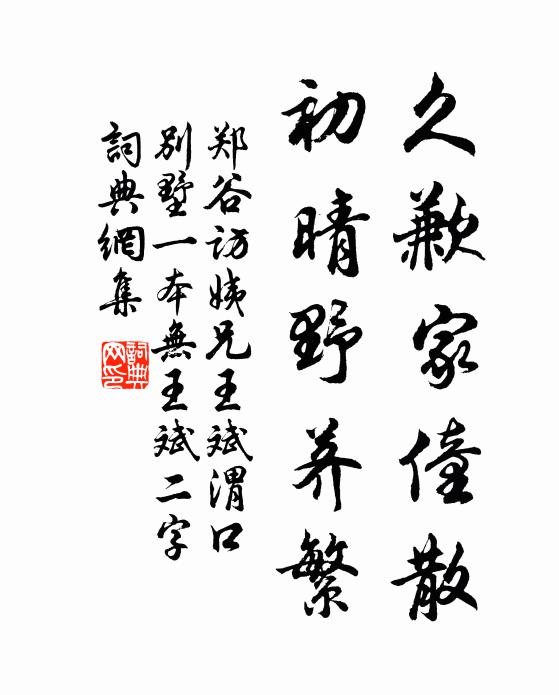 久歉家僮散
初晴野荠繁
郑谷访姨兄王斌渭口
别墅一本無王斌二字
詞典網集
詞典网印